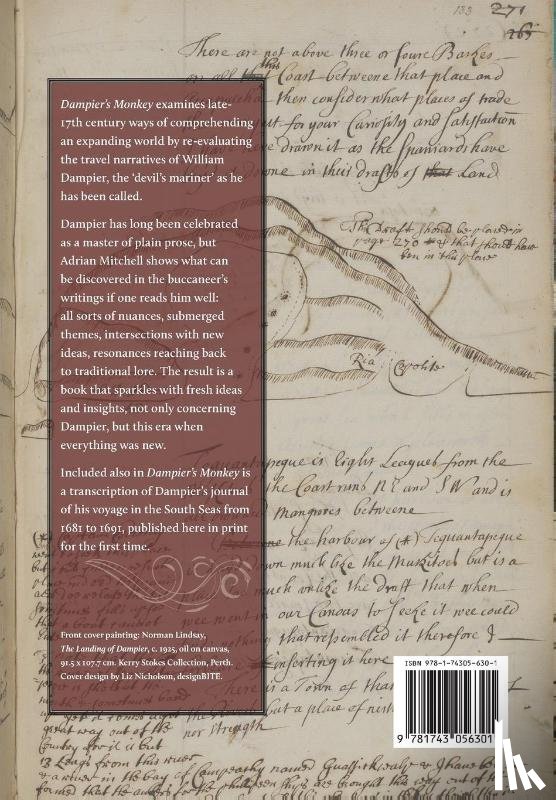 133 271
265
There are not above three or foure Barkes
on all this Coast betweene that place and
then consider what places of trade
for your Curiosity and Satisfaction
drawn it as the Spaniards have
done in their drafts of that Land
Dampier's Monkey examines late-
17th century ways of comprehending
an expanding world by re-evaluating
the travel narratives of William
Dampier, the 'devil's mariner' as he
has been called.
Dampier has long been celebrated
as a master of plain prose, but
Adrian Mitchell shows what can
be discovered in the buccaneer's
writings if one reads him well:
all sorts of nuances, submerged
themes, intersections with new
ideas, resonances reaching back
to traditional lore. The result is a
book that sparkles with fresh ideas
and insights, not only concerning
Dampier, but this era when
everything was new.
Included also in Dampier's Monkey is
a transcription of Dampier's journal
of his voyage in the South Seas from
1681 to 1691, published here in print
for the first time.
Front cover painting: Norman Lindsay,
The Landing of Dampier, c. 1925, oil on canvas,
91.5 x 107.7 cm. Kerry Stokes Collection, Perth.
Cover design by Liz Nicholson, designBITE.
This Draft should be placed in
page 270 that should have
ben in this place
Ria Copolito
Tequantapeque is eight Leagues from the
the Coast runs NE and SW and is
mangroves betweene
the harbour of (*) Tequantapeque
down much like the Muskitoes but is a
much unlike the draft that when
went in our Canoas to seeke it wee could
nothing that resembled it therefore I
inserting it here
is a Town of
but a place of
nor strength
great way out of the
Countrey for it is but
13 Leags from this river
a river in the bay of Campeachy named
ISBN 978-1-74305-630-1
9 781743 056301